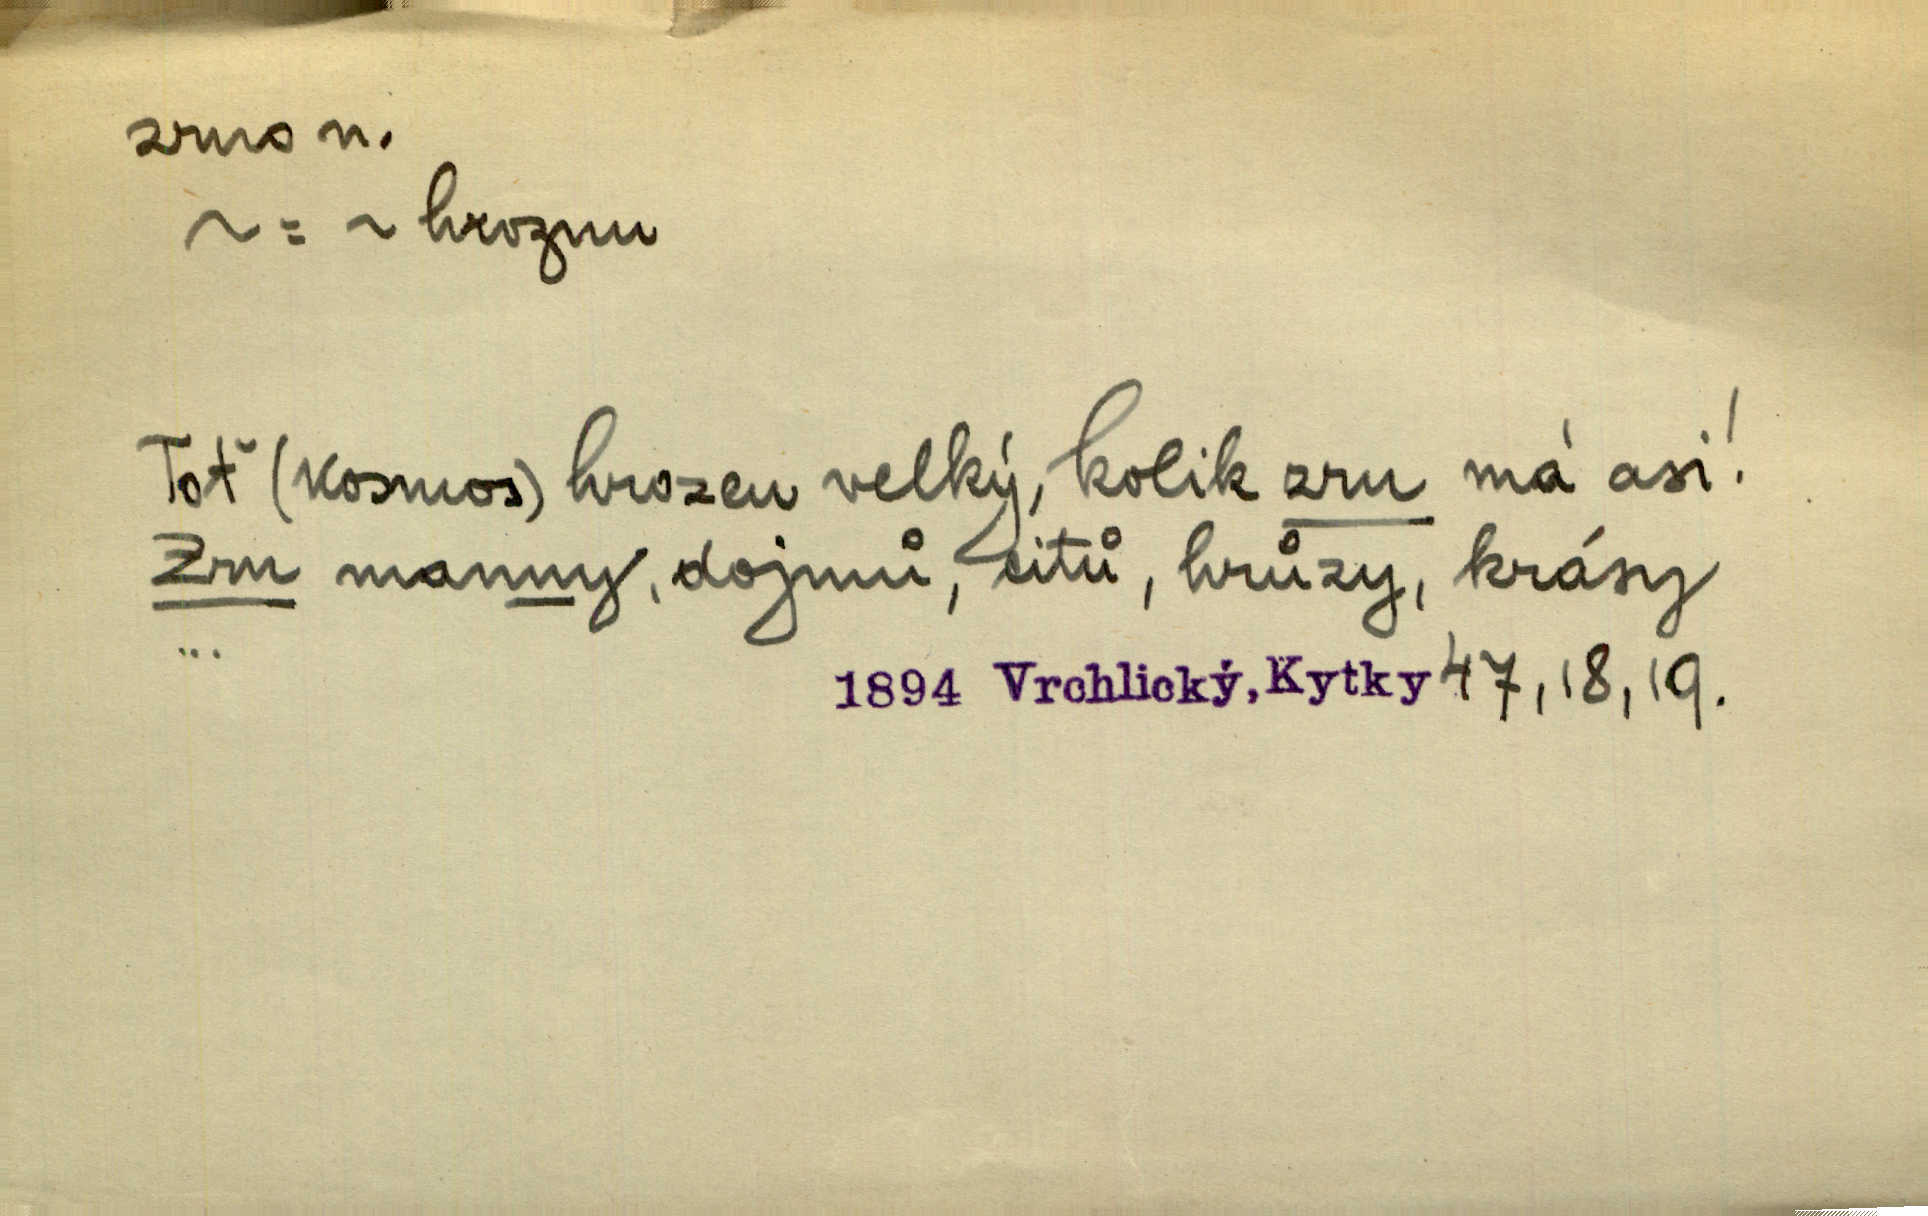 zrno n.
~ = ~ hroznu
Toť (Kosmos) hrozen velký, kolik zrn má asi!
Zrn manny, dojmů, citů, hrůzy, krásy
...
1894 Vrchlický, Kytky 47, 18, 19.